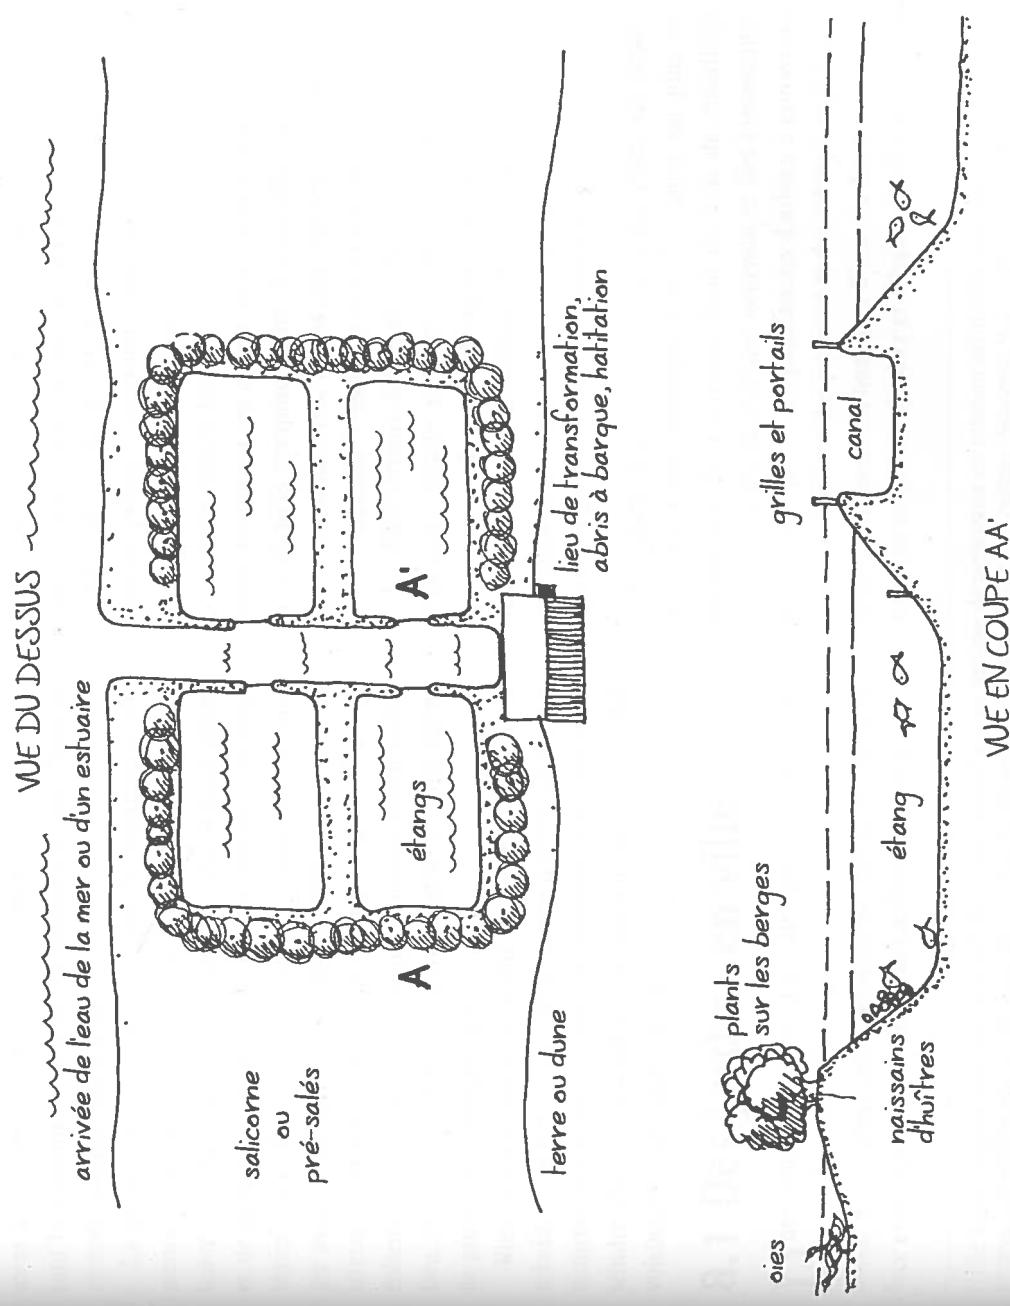 VUE DU DESSUS
arrivée de l'eau de la mer ou d'un estuaire
salicorne
ou
pré-salés
étangs
A
A'
terre ou dune
lieu de transformation,
abris à barque, habitation
oies
plants
sur les berges
naissains
d'huîtres
étang
grilles et portails
canal
VUE EN COUPE AA'